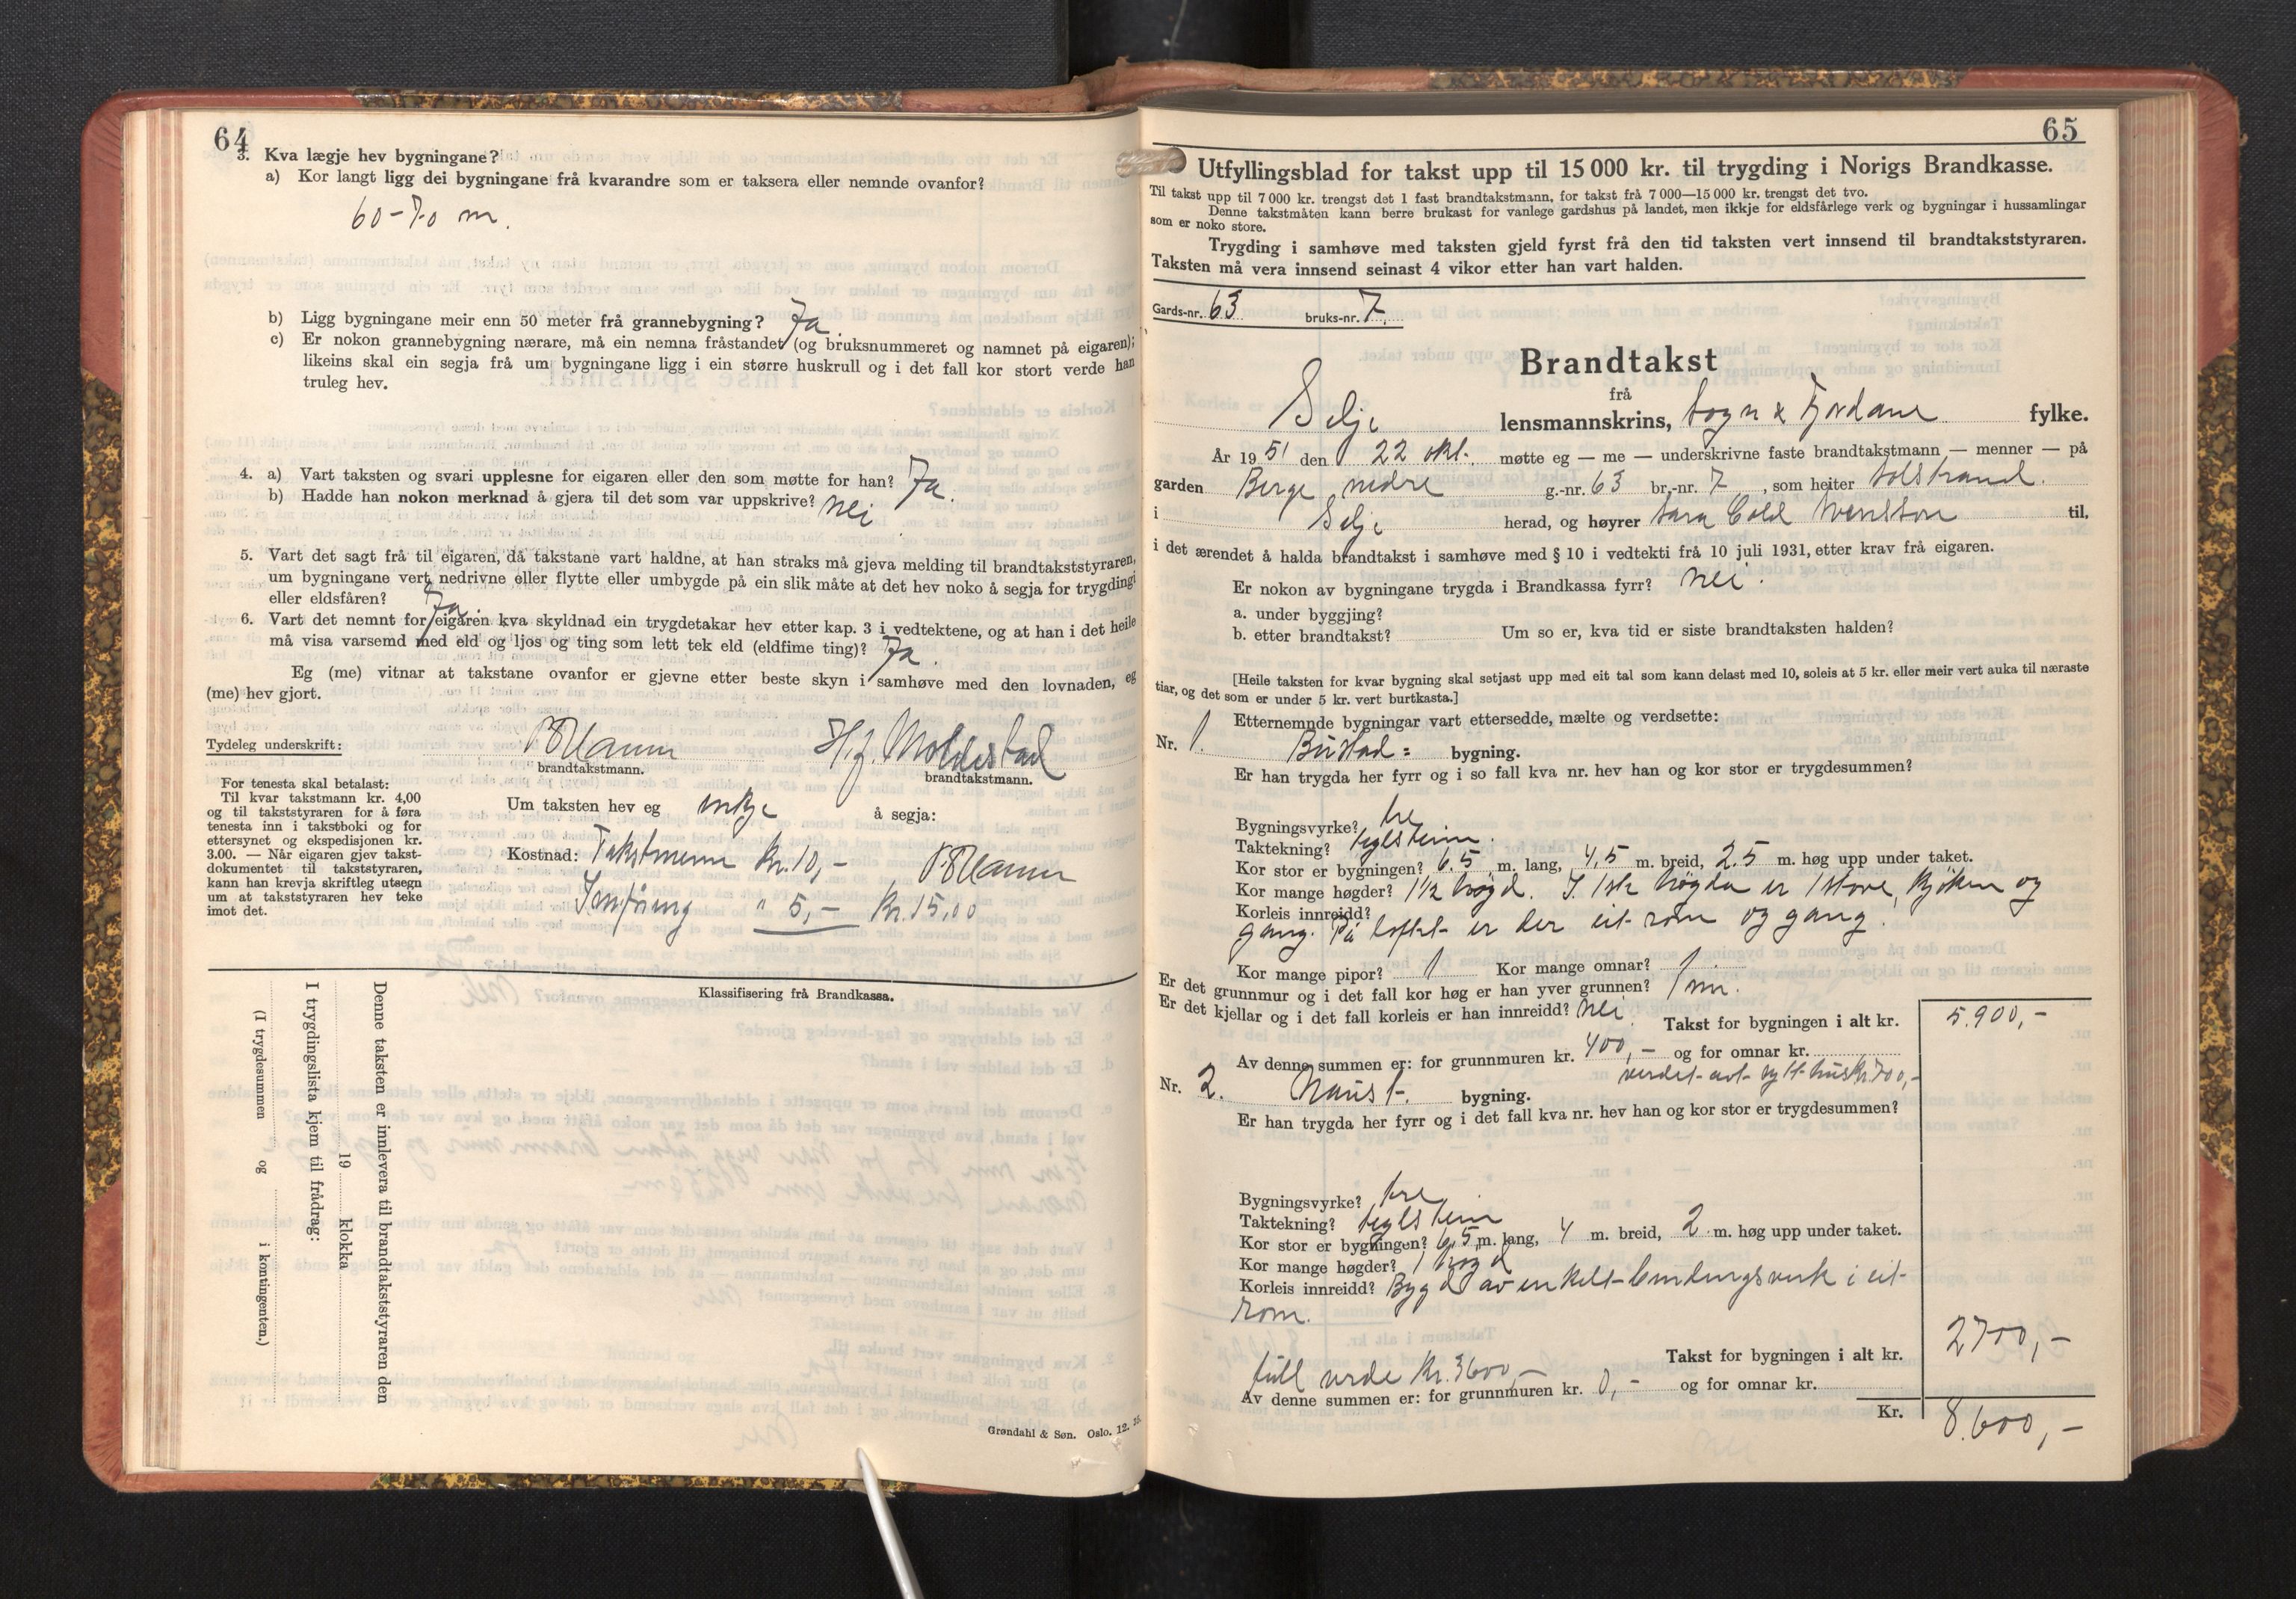 64
3. Kva lægje hev bygningane?
a) Kor langt ligg dei bygningane frå kvarandre som er taksera eller nemnde ovanfor?
60-70 m.
b) Ligg bygningane meir enn 50 meter frå grannebygning? Ja.
c) Er nokon grannebygning nærare, må ein nemna fråstandet (og bruksnummeret og namnet på eigaren);
likeins skal ein segja frå um bygningane ligg i ein større huskrull og i det fall kor stort verde han
truleg hev.
4. a) Vart taksten og svari upplesne for eigaren eller den som møtte for han? Ja.
b) Hadde han nokon merknad å gjera til det som var uppskrive? nei
5. Vart det sagt frå til eigaren, då takstane vart haldne, at han straks må gjeva melding til brandtakststyraren,
um bygningane vert nedrivne eller flytte eller umbygde på ein slik måte at det hev noko å segja for trygdingi
eller eldsfåren? Ja.
6. Vart det nemnt for eigaren kva skyldnad ein trygdetakar hev etter kap. 3 i vedtektene, og at han i det heile
må visa varsemd med eld og ljos og ting som lett tek eld (eldfime ting)? Ja.
Eg (me) vitnar at takstane ovanfor er gjevne etter beste skyn i samhøve med den lovnaden, eg
(me) hev gjort.
Tydeleg underskrift: H.J. Moldestad
brandtakstmann. brandtakstmann.
For tenesta skal betalast:
Til kvar takstmann kr. 4,00
og til takststyraren for å føra
tenesta inn i takstboki og for
ettersynet og ekspedisjonen kr.
3.00. — Når eigaren gjev takst-
dokumentet til takststyraren,
kann han krevja skriftleg utsegn
um at takststyraren hev teke
imot det.
Um taksten hev eg inkje å segja:
Kostnad: Takstmenn Kr. 10,-
Innføring " 5,- Kr. 15,00
Klassifisering frå Brandkassa.
Denne taksten er innlevera til brandtakststyraren den
19 klokka
I trygdingslista kjem til frådrag:
(I trygdesummen og i kontingenten.)
Grøndahl & Søn. Oslo. 12.
65
Utfyllingsblad for takst upp til 15 000 kr. til trygding i Norigs Brandkasse.
Til takst upp til 7 000 kr. trengst det 1 fast brandtakstmann, for takst frå 7 000—15 000 kr. trengst det tvo.
Denne takstmåten kann berre brukast for vanlege gardshus på landet, men ikkje for eldsfårlege verk og bygningar i hussamlingar
som er noko store.
Trygding i samhøve med taksten gjeld fyrst frå den tid taksten vert innsend til brandtakststyraren.
Taksten må vera innsend seinast 4 vikor etter han vart halden.
Gards-nr. 63 bruks-nr. 7.
Brandtakst
frå
Selje lensmannskrins, Sogn & Fjordane fylke.
År 1951 den 22 okt. møtte eg — me — underskrivne faste brandtakstmann — menner — på
garden Berge nedre g.-nr. 63 br.-nr. 7, som heiter Solstrand.
i Selje herad, og høyrer Sara til,
i det ærendet å halda brandtakst i samhøve med § 10 i vedtekti frå 10 juli 1931, etter krav frå eigaren.
Er nokon av bygningane trygda i Brandkassa fyrr? nei.
a. under byggjing?
b. etter brandtakst? Um so er, kva tid er siste brandtaksten halden?
[Heile taksten for kvar bygning skal setjast upp med eit tal som kann delast med 10, soleis at 5 kr. eller meir vert auka til næraste
tiar, og det som er under 5 kr. vert burtkasta.]
Etternemnde bygningar vart ettersedde, mælte og verdsette:
Nr. 1. Bustad= bygning.
Er han trygda her fyrr og i so fall kva nr. hev han og kor stor er trygdesummen?
Bygningsvyrke? tre
Taktekning? teglstein.
Kor stor er bygningen? 6.5 m. lang, 4,5 m. breid, 2.5 m. høg upp under taket.
Kor mange høgder? 1½ høgd. I 1ste høgda er 1 stove, kjøken og
Korleis innreidd?
gang. På loftet er der eit rom og gang.
Kor mange pipor? 1 Kor mange omnar? 1
Er det grunnmur og i det fall kor høg er han yver grunnen? 1 m.
Er det kjellar og i det fall korleis er han innreidd? nei.
Takst for bygningen i alt kr. 5.900,-
Av denne summen er: for grunnmuren kr. 400,- og for omnar kr.
Nr. 2. Naust. bygning.
Er han trygda her fyrr og i det fall kva nr. hev han og kor stor er trygdesummen?
Bygningsvyrke? tre
Taktekning? teglstein
Kor stor er bygningen? 6,5 m. lang, 4 m. breid, 2 m. høg upp under taket.
Kor mange høgder? 1 høgd
Korleis innreidd? Bygd av enkelt bindingsverk i eit
rom.
Takst for bygningen i alt kr. 2700,-
full verde Kr. 3600,-
Av denne summen er: for grunnmuren kr. 0,- og for omnar kr.
Kr. 8.600,-